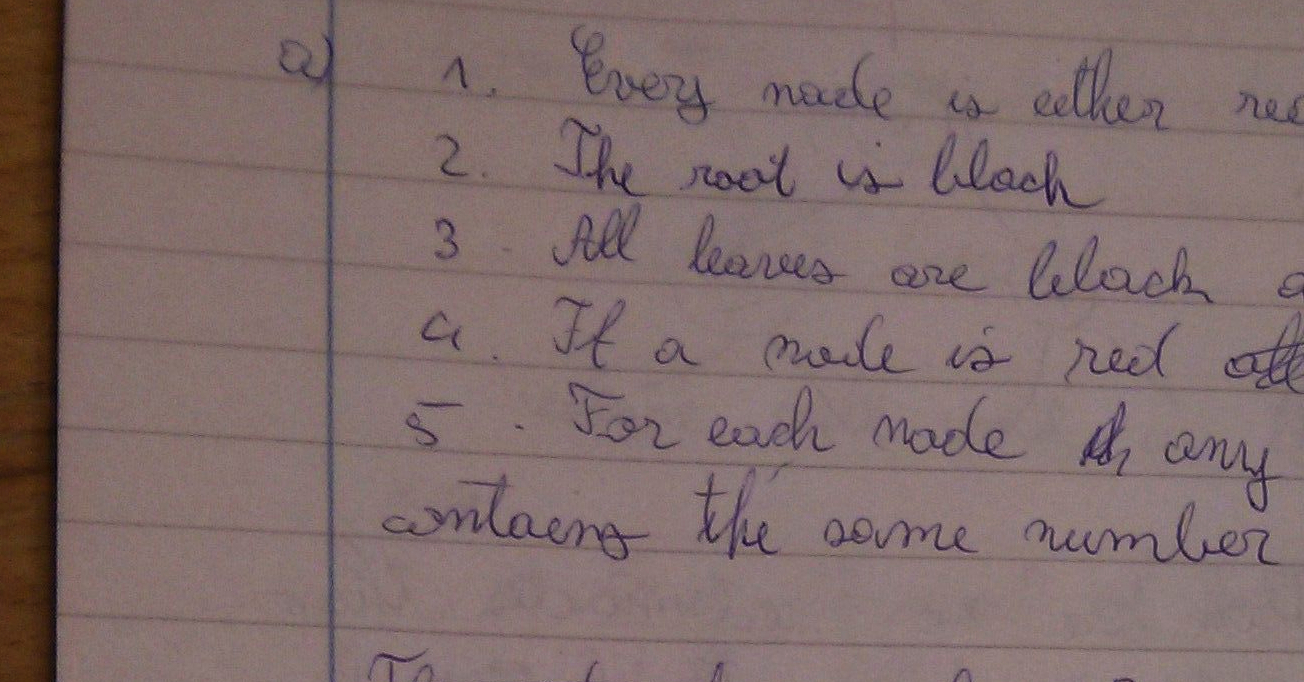 a) 1. Every node is either red
2. The root is black
3. All leaves are black
4. If a node is red
5. For each node any
contains the same number